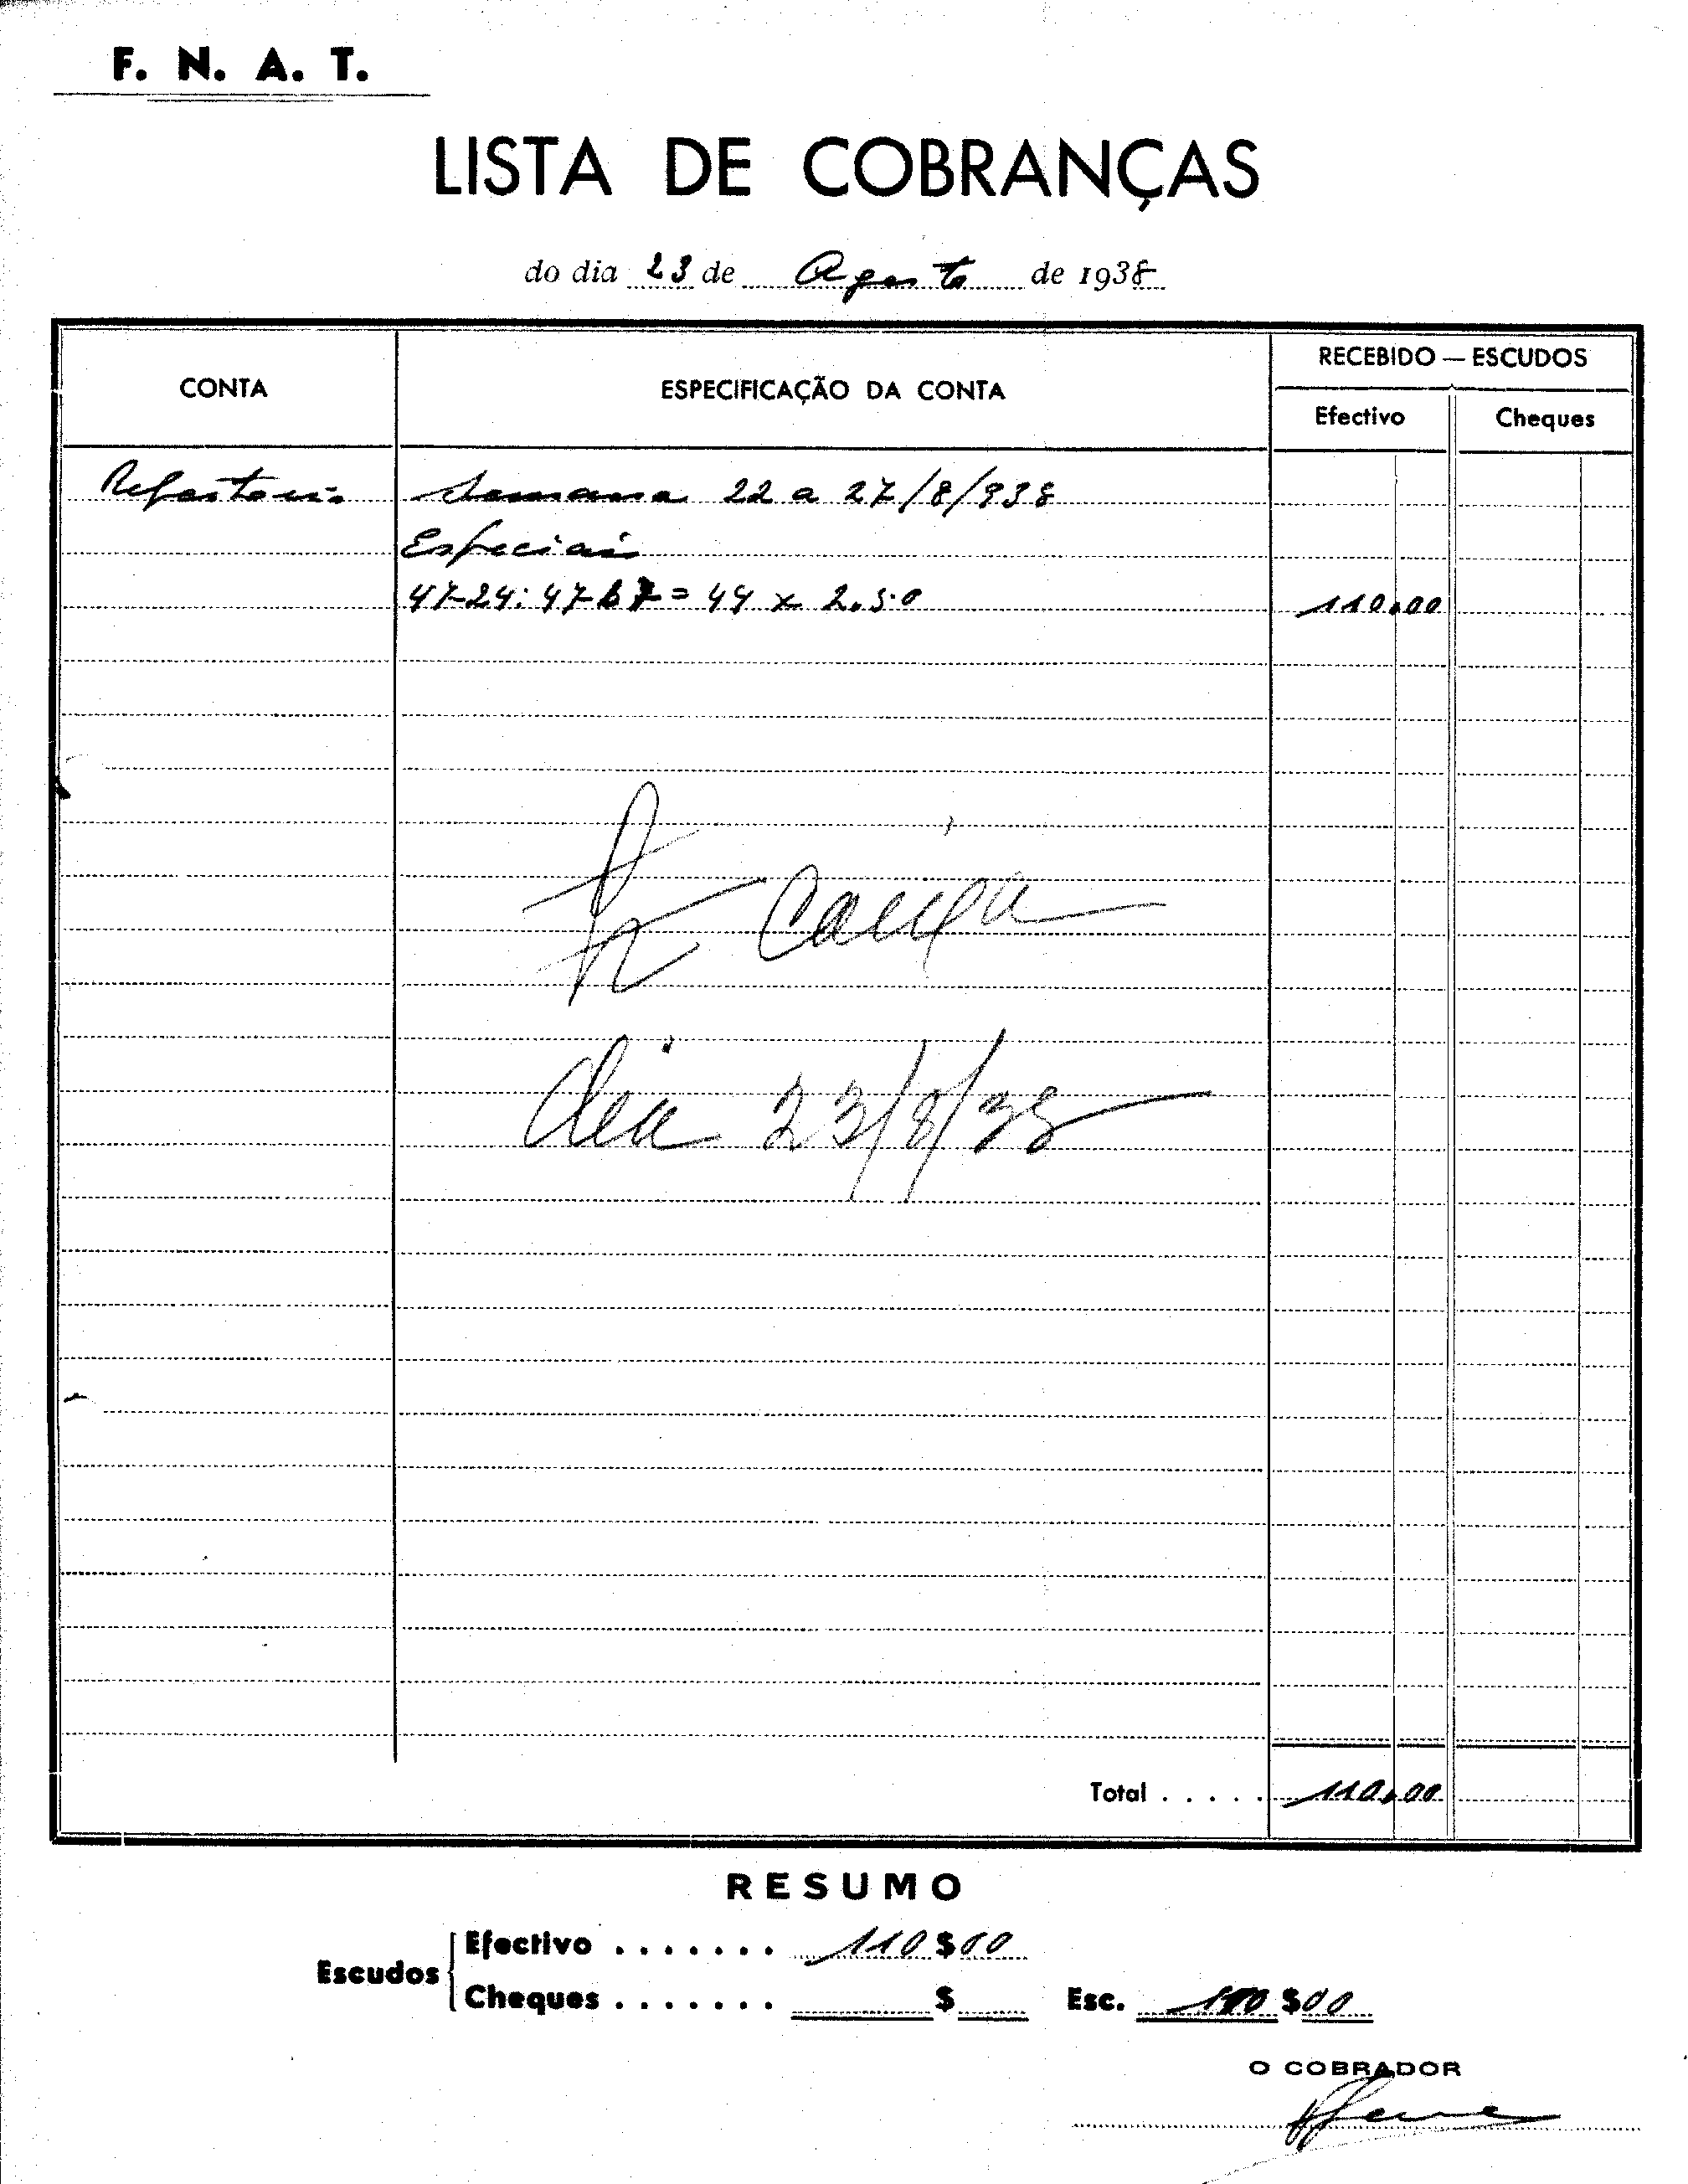 F. N. A. T.
LISTA DE COBRANÇAS
do dia 23 de Agosto de 1938
CONTA
ESPECIFICAÇÃO DA CONTA
RECEBIDO — ESCUDOS
Efectivo
Cheques
Refeitorio semana 22 a 27/8/938
Especiais
47-24: 47-67 = 44 x 2.50 110,00
Caixa
dia 23/8/38
Total . . . . . 110,00
RESUMO
Escudos
Efectivo . . . . . . . 110$00
Cheques . . . . . . . $ Esc. 110$00
O COBRADOR